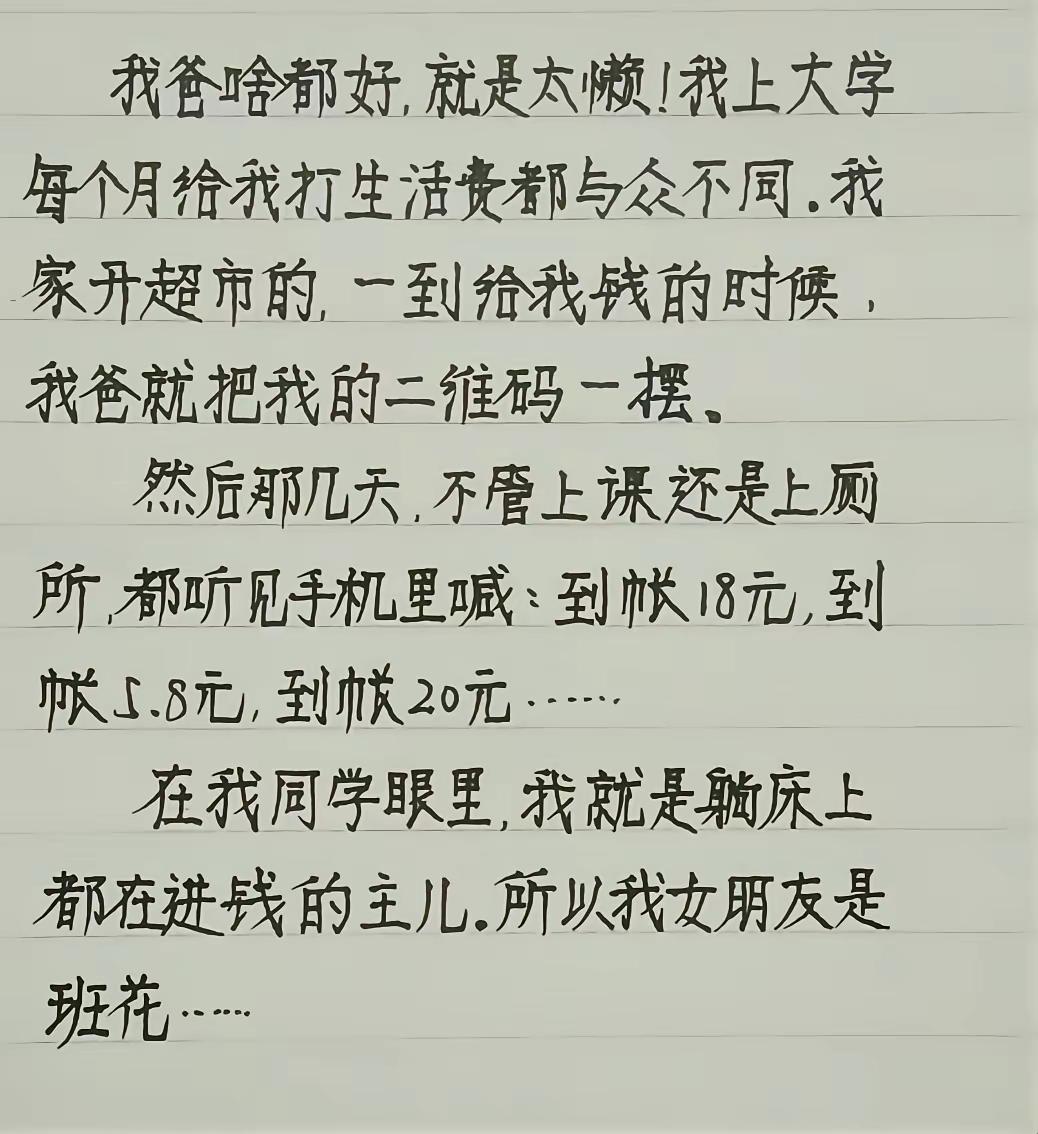 我爸啥都好,就是太懒!我上大学
每个月给我打生活费都与众不同.我
家开超市的,一到给我钱的时候,
我爸就把我的二维码一摆、
然后那几天,不管上课还是上厕
所,都听见手机里喊:到帐18元,到
帐5.8元,到帐20元……
在我同学眼里,我就是躺床上
都在进钱的主儿.所以我女朋友是
班花……